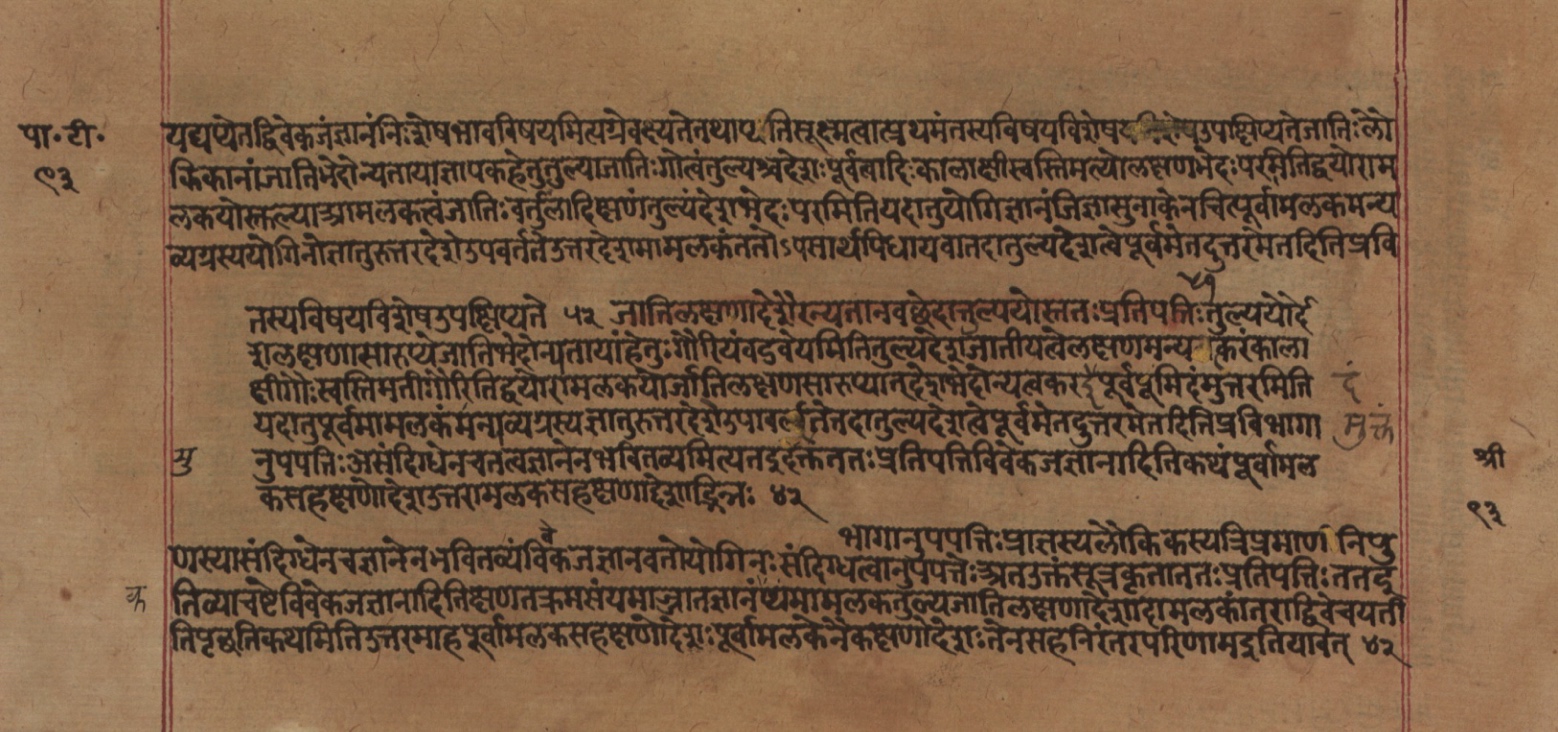 पा॰ टी॰
९३
यद्यप्येतद्विवेकजंज्ञानंनिःशेषभावविषयमित्यग्रेवक्ष्यतेतथाप्यतिसूक्ष्मत्वात्प्रथमंतस्यविषयविशेषउपक्षिप्यतेजातिःलौ
किकानांजातिभेदोन्यतायाज्ञापकहेतुतुल्याजातिःगोत्वंतुल्यश्चदेशःपूर्वत्वादिःकालाक्षीस्वस्तिमत्योलक्षणभेदःपरमितिद्वयोराम
लकयोस्तुल्याआमलकत्वंजातिःवर्तुलादिक्षणंतुल्यंदेशभेदःपरमितियदातुयोगिज्ञानंजिज्ञासुनाकेनचित्पूर्वामलकमन्य
व्यग्रस्ययोगिनोज्ञातुरुत्तरदेशेउपवर्ततेउत्तरदेशमामलकंततोऽपसार्यपिधायवातदातुल्यदेशत्वेपूर्वमेतदुत्तरमेतदितिप्रवि
तस्यविषयविशेषउपक्षिप्यते ५२ जातिलक्षणदेशैरन्यतानवछेदात्तुल्ययोस्ततःप्रतिपत्तिःतुल्ययोर्दे
शलक्षणासारूप्येजातिभेदोन्यतायांहेतुःगौरियंवडवेयमितितुल्यदेशजातीयत्वेलक्षणमन्यत्वकरंकाला
क्षीगौःस्वस्तिमतीगौरितिद्वयोरामलकयोर्जातिलक्षणसारूप्यातदेशभेदोन्यत्वकरइपूर्वपूमिदंमुत्तरमिति
दं
यदातुपूर्वमामलकंमन्यव्यग्रस्यज्ञातुरुत्तरंदेशेउपावर्त्ततेतदातुल्यदेशत्वेपूर्वमेतदुत्तरमेतदितिप्रविभागा
नुपपत्तिःअसंदिग्धेनचतत्वज्ञानेनभवितव्यमित्यतदुहक्तंततःप्रतिपत्तिविवेकजज्ञानादितिकथंपूर्वामल
मु
श्री
कसहक्षणोदेशउत्तरामलकसहक्षणादेशाद्भिन्नः ४२
९३
भागानुपपत्तिःप्राप्तस्यलौकिकस्यत्रिप्रमाणनिपु
णस्यासंदिग्धेनचज्ञानेनभवितव्यंविवेकजज्ञानवतोयोगिनःसंदिग्धत्वानुपपत्तेःअतउक्तंसूत्रकृताततःप्रतिपत्तिःततद्
तिव्याचष्टेविवेकजज्ञानादितिक्षणतत्क्रमसंयमाज्ञातज्ञानंप्यमामलकतुल्यजातिलक्षणादेशादामलकांतराद्विवेचयती
क्र
तिपृछतिकथमितिउत्तरमाहपूर्वामलकसहक्षणोदेशःपूर्वामलकेनैकक्षणोदेशःतेनसहनिरंतरपरिणामइतियावत् ४२